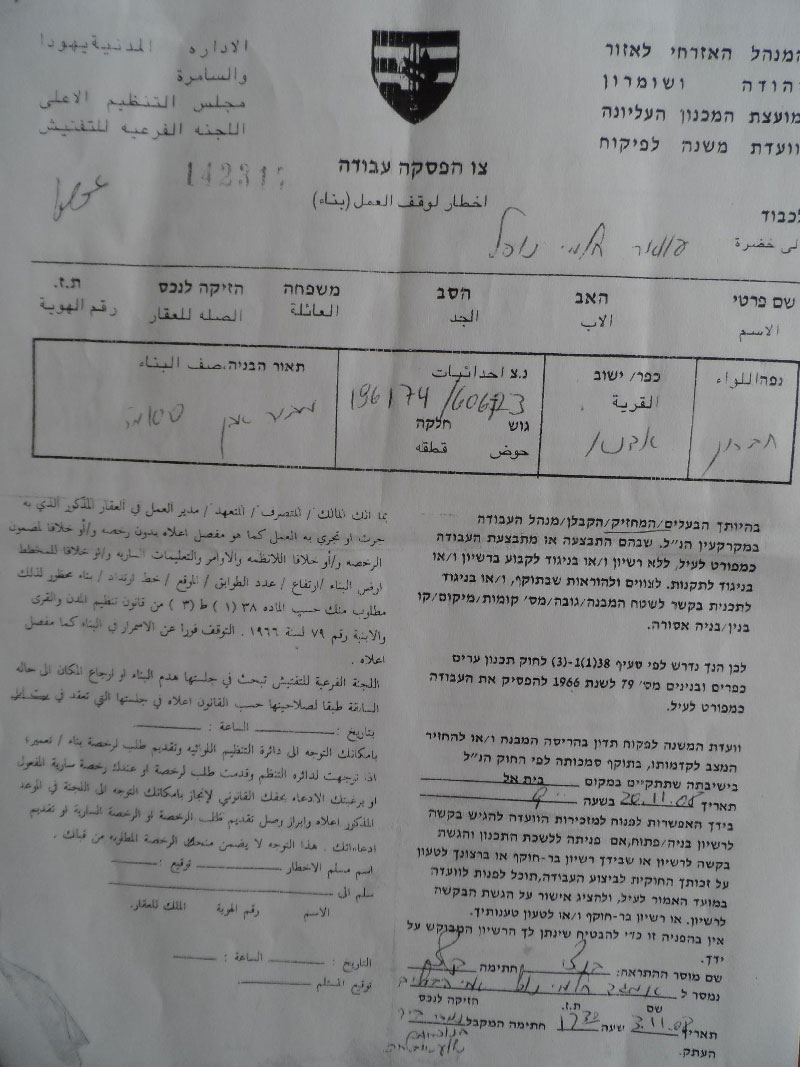 המנהל האזרחי לאזור
יהודה ושומרון
מועצת התכנון העליונה
וועדת משנה לפיקוח
الاداره المدنية يهودا
والسامرة
مجلس التنظيم الاعلى
اللجنه الفرعيه للتفتيش
צו הפסקה עבודה
اخطار لوقف العمل (بناء)
לכבוד
الى حضرة
שם פרטי האב הסב משפחה הזיקה לנכס ת.ז.
الاسم الاب الجد العائلة الصله للعقار رقم الهوية
נפה اللواء
חברון
כפר/ ישוב
القرية
נ.צ احداثيات
גוש חלקה
حوض قطقه
תאור הבניה، صف البناء
בהיותך הבעלים/המחזיק/הקבלן/מנהל העבודה
במקרקעין הנ"ל. שבהם התבצעה או מתבצעת העבודה
כמפורט לעיל, ללא רשיון ו/או בניגוד לקבוע ברשיון ו/או
בניגוד לתקנות. לצווים ולהוראות שבתוקף, ו/או בניגוד
לתכנית בקשר לשטח המבנה/גובה/מס' קומות/מיקום/קו
בנין/בניה אסורה.
לכן הנך נדרש לפי סעיף 38(1)ו-(3) לחוק תכנון ערים
כפרים ובנינים מס' 79 לשנת 1966 להפסיק את העבודה
כמפורט לעיל.
וועדת המשנה לפקוח תדון בהריסה המבנה ו/או להחזיר
המצב לקדמותו, בתוקף סמכותה לפי החוק הנ"ל
בישיבתה שתתקיים במקום בית אל
תאריך 20.11.08 בשעה 9
בידך האפשרות לפנות למזכירות הוועדה להגיש בקשה
לרשיון בניה/פתוח,אם פניתה ללשכת התכנון והגשת
בקשה לרשיון או שבידך רשיון בר-תוקף או ברצונך לטעון
על זכותך החוקית לביצוע העבודה,תוכל לפנות לוועדה
במועד האמור לעיל, ולהציג אישור על הגשת הבקשה
לרשיון. או רשיון בר-תוקף ו/או לטעון טענותיך.
אין בהפניה זו כדי להבטיח שינתן לך הרשיון המבוקש על
ידך.
שם מוסר ההתראה: חתימה
נמסר ל
שם ת.ז. הזיקה לנכס
תאריך 3.11.08 שעה חתימה המקבל
העתק.
بما انك المالك / المتصرف / المتعهد / مدير العمل في العقار المذكور الذي به
جرت او تجري به العمل كما هو مفصل اعلاه بدون رخصه و/أو خلافا لمضمون
الرخصه و/أو خلافا للانظمه والاوامر والتعليمات الساريه و/او خلافا للمخطط
ارض البناء /ارتفاع / عدد الطوابق / الموقع / خط ارتداد / بناء محظور لذلك
مطلوب منك حسب الماده ٣٨ (١) ط (٣) من قانون تنظيم المدن والقرى
والابنية رقم ٧٩ لسنة ١٩٦٦ . التوقف فورا عن الاسمرار في البناء كما مفصل
اعلاه .
اللجنة الفرعية للتفتيش تبحث في جلستها هدم البناء او ارجاع المكان الى حاله
السابقة طبقا لصلاحيتها حسب القانون اعلاه في جلستها التي تعقد في بيت ايل
بتاريخ : الساعة :
بامكانك التوجه الى دائرة التنظيم اللوائيه وتقديم طلب لرخصة بناء / تعمير؛
اذا توجهت لدائره التنظم وقدمت طلب لرخصة او عندك رخصة سارية المفعول
او برغبتك الادعاء بحقك القانوني لإنجاز بامكانك التوجه الى اللجنة في الموعد
المذكور اعلاه وإبراز وصل تقديم طلب الرخصة او الرخصة السارية او تقديم
ادعاءاتك . هذا التوجه لا يضمن منحك الرخصة المطلوبه من قبلك .
اسم مسلم الاخطار توقيع :
سلم الى
الاسم رقم الهوية الملك للعقار.
التاريخ : الساعة :
توقيع المستلم